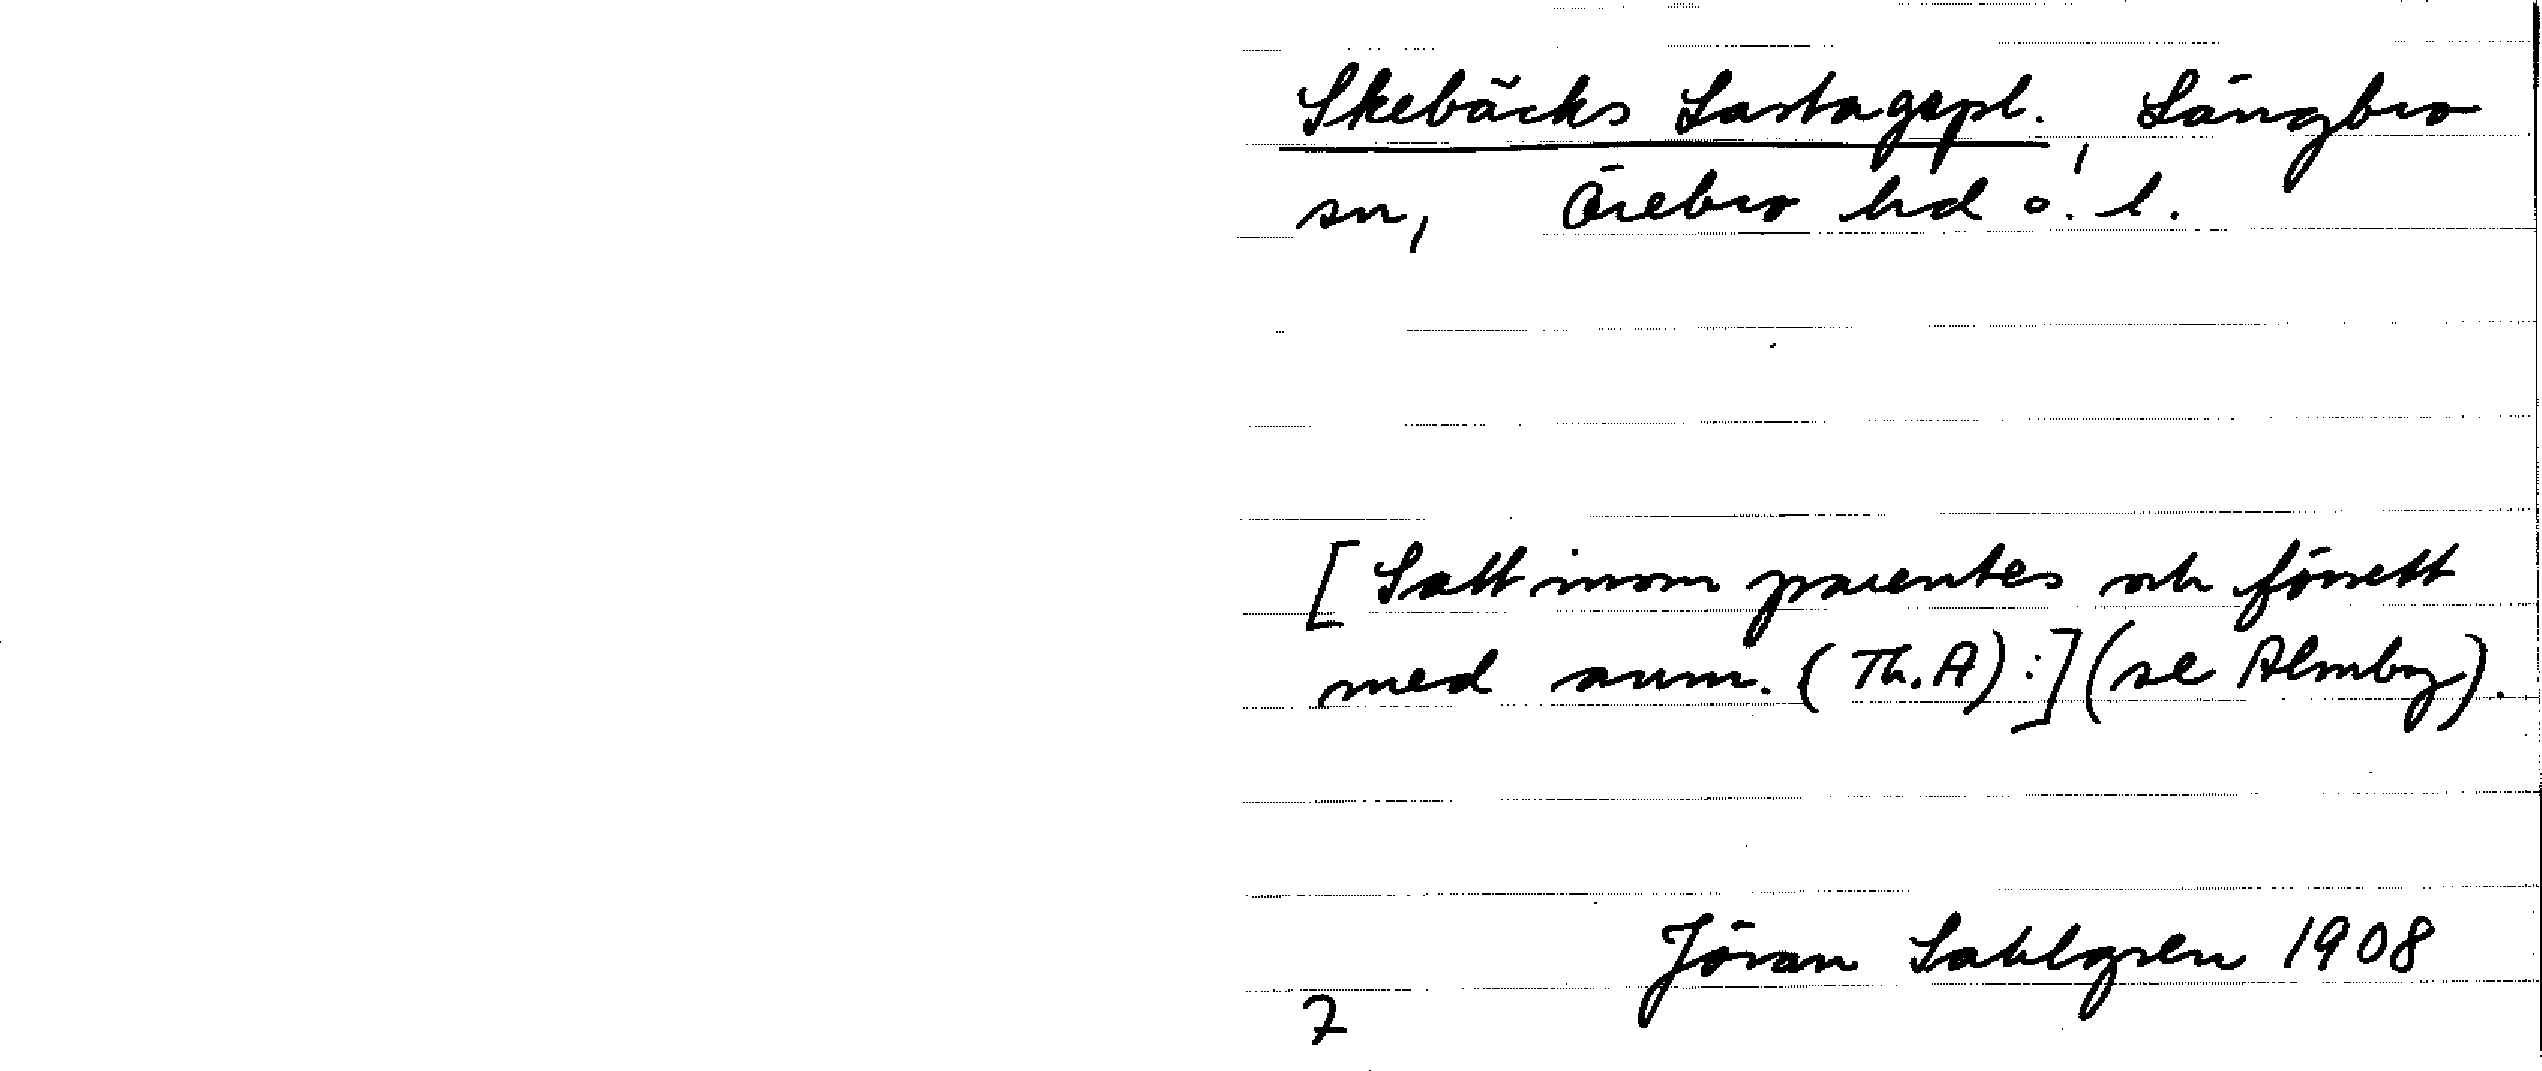 Skebäcks Lastagepl., Längbro
sn, Örebro hd o. l.
[Satt inom parentes och försett
med anm. (Th.A):] (se Almby).
Jöran Sahlgren 1908
7